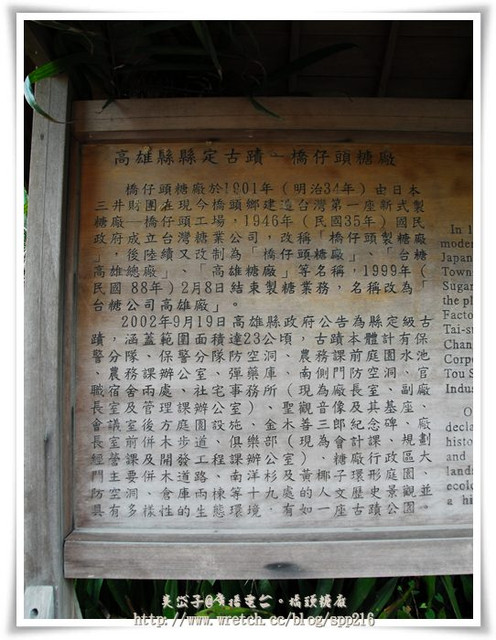 高雄縣縣定古蹟－橋仔頭糖廠
橋仔頭糖廠於1901年（明治34年）由日本
三井財團在現今橋頭鄉建造台灣第一座新式製
糖廠—橋仔頭工場，1946年（民國35年）國民
政府成立台灣糖業公司，改稱「橋仔頭製糖廠
」，後陸續又改制為「橋仔頭糖廠」、「台糖
高雄總廠」、「高雄糖廠」等名稱，1999年（
民國 88年）2月8日結束製糖業務，名稱改為「
台糖公司高雄廠」。
2002年9月19日高雄縣政府公告為縣定級古
蹟，涵蓋範圍面積達23公頃，古蹟本體計有保
警分隊、保警分隊防空洞、農務課前庭園水池
、農務課辦公室、彈藥庫、南側門防空洞、官
職宿舍兩處、社宅事務所（現為廠長室、副廠
長室及管理課辦公室）、聖觀音像及其基座、
會議室後方庭園設施、金木善三郎紀念碑、廠
長室前併木步道、俱樂部（現為會計課、規劃
經營課及開發工程課辦公室）、糖廠行政區大
門主要併木道路、南洋杉及黃椰子環形庭園、
防空洞、倉庫兩棟等十九處的人文歷史景觀，並
具有多樣性的生態環境，有如一座古蹟公園。
In 1
modern
Japan
Town
Sugar
the pl
Facto
Tai-su
Chan
Corpo
Tou S
Indus
O
decla
histo
and
lands
ecolo
a hi
橋頭糖廠
http://www.wretch.cc/blog/spp216